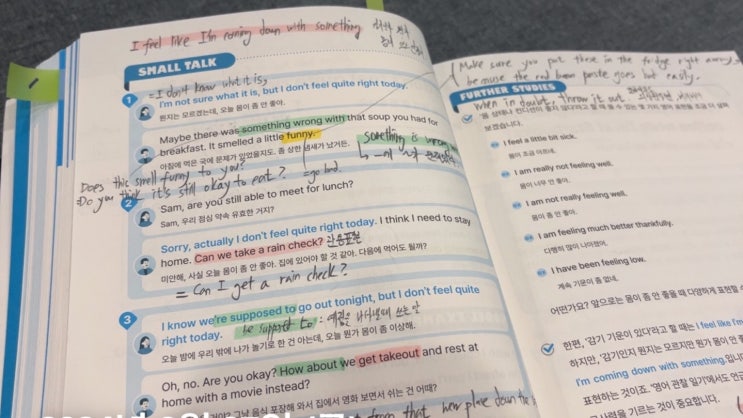 I feel like I'm coming down with something
SMALL TALK
= I don't know what it is,
1
I'm not sure what it is, but I don't feel quite right today.
뭔지는 모르겠는데, 오늘 몸이 좀 안 좋아.
Maybe there was something wrong with that soup you had for
breakfast. It smelled a little funny.
아침에 먹은 국에 문제가 있었을지도. 좀 상한 냄새가 났거든.
something is wrong
= go bad.
Does this smell funny to you?
Do you think it's still okay to eat?
2
Sam, are you still able to meet for lunch?
Sam, 우리 점심 약속 유효한 거지?
Sorry, actually I don't feel quite right today. I think I need to stay
home. Can we take a rain check? 관용표현
미안해, 사실 오늘 몸이 좀 안 좋아. 집에 있어야 할 것 같아. 다음에 먹어도 될까?
= Can I get a rain check?
3
I know we're supposed to go out tonight, but I don't feel quite
right today.
be supposed to :
오늘 밤에 우리 밖에 나가 놀기로 한 건 아는데, 오늘 뭔가 몸이 좀 이상해.
Oh, no. Are you okay? How about we get takeout and rest at
home with a movie instead?
그냥 음식 포장해 와서 집에서 영화 보면서 쉬는 건 어때?
from that new place down the
Make sure you put these in the fridge right away
because the red bean paste goes bad easily.
FURTHER STUDIES
When in doubt, throw it out
보겠습니다.
I feel a little bit sick.
몸이 조금 아프네.
I am really not feeling well.
몸이 너무 안 좋아.
I am not really feeling well.
몸이 좀 안 좋아.
I am feeling much better thankfully.
다행히 많이 나아졌어.
I have been feeling low.
계속 기운이 좀 없네.
어떤가요? 앞으로는 몸이 좀 안 좋을 때 다양하게 표현할 수
한편, '감기 기운이 있다'라고 할 때는 I feel like I'm
하지만, '감기인지 뭔지는 모르지만 뭔가 몸이 안 좋
I'm coming down with something.입니
표현하는 것이죠. '영어 관찰 일기'에서도 언급